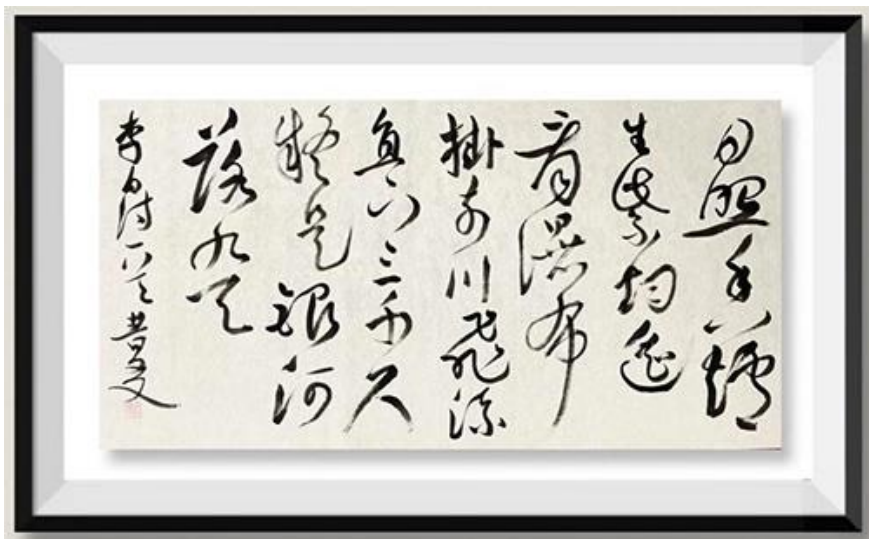 日照香爐
生紫烟遥
看瀑布
掛前川飛流
直下三千尺
疑是銀河
落九天
李白诗一首